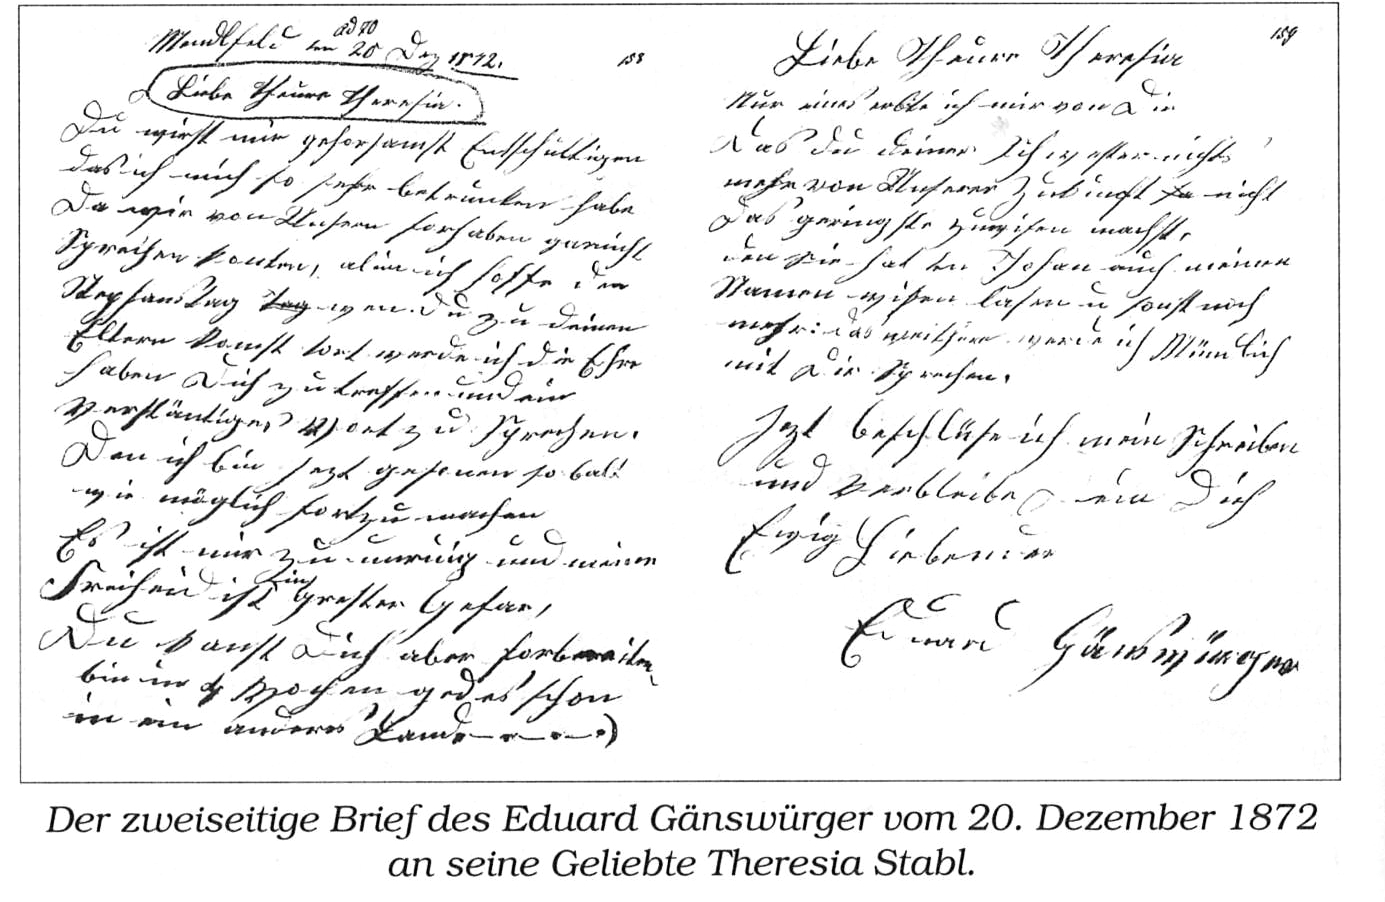 ad 70
Mendlfeld den 20 Dez 1872.
158
Liebe Theure Theresia.
Du wirst mir gehorsamst Entschultigen
das ich mich so sehr betrunken habe
Da wir von Unsern forhaben garnicht
Sprechen konten, alein ich hoffe den
Stephanstag tag wen du zu deinen
Eltern komst dort werde ich die Ehre
haben Dich zu treffen und ein
Verständiges Wort zu Sprechen.
Den ich bin jezt gesonen so bald
wie möglich fortzumachen
Es ist mir zu unruig und meine
Freiheid ist in grester Gefar,
Du kanst Dich aber forbereiten
bin in 4 Wochen ged es schon
in ein anderes Land
159
Liebe Theure Theresia
Nur eines erbite ich mir von Dir
Das du deiner Schwester nichts
mehr von Unserer Zukunft nicht
das geringste zuwisen machst,
den sie hat den Johan auch meinen
Namen wisen lasen u sonst noch
mehr: das weithere werde ich Mündlich
mit Dir Sprechen.
Jezt beschlüse ich mein Schreiben
und verbleibe ein Dich
Ewig Liebender
Eduard Gänswürger
Der zweiseitige Brief des Eduard Gänswürger vom 20. Dezember 1872
an seine Geliebte Theresia Stabl.